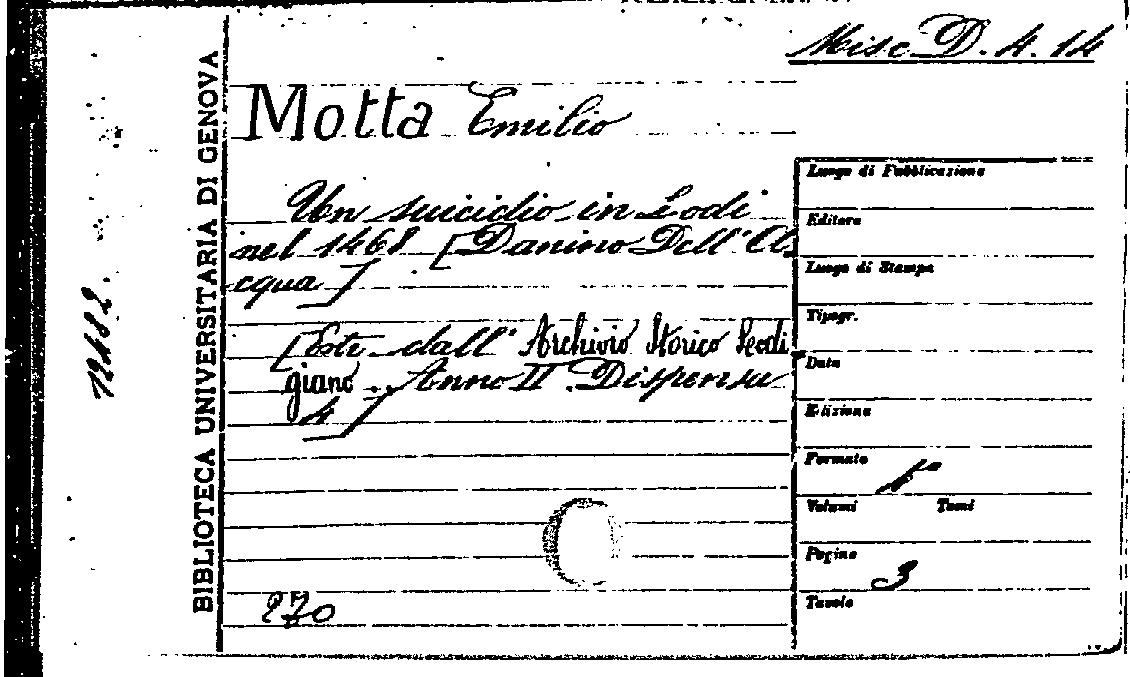 Misc. D. 4. 14
BIBLIOTECA UNIVERSITARIA DI GENOVA
12682.
Motta Emilio
Un suicidio in Lodi
nel 1468 [Danino Dell'A=
cqua]
[Estr. dall' Archivio Storico Lodi
giano. Anno II Dispensa
4]
270
Luogo di Pubblicazione
Editore
Luogo di Stampa
Tipogr.
Data
Edizione
Formato
Volumi Tomi
Pagine 3
Tavole